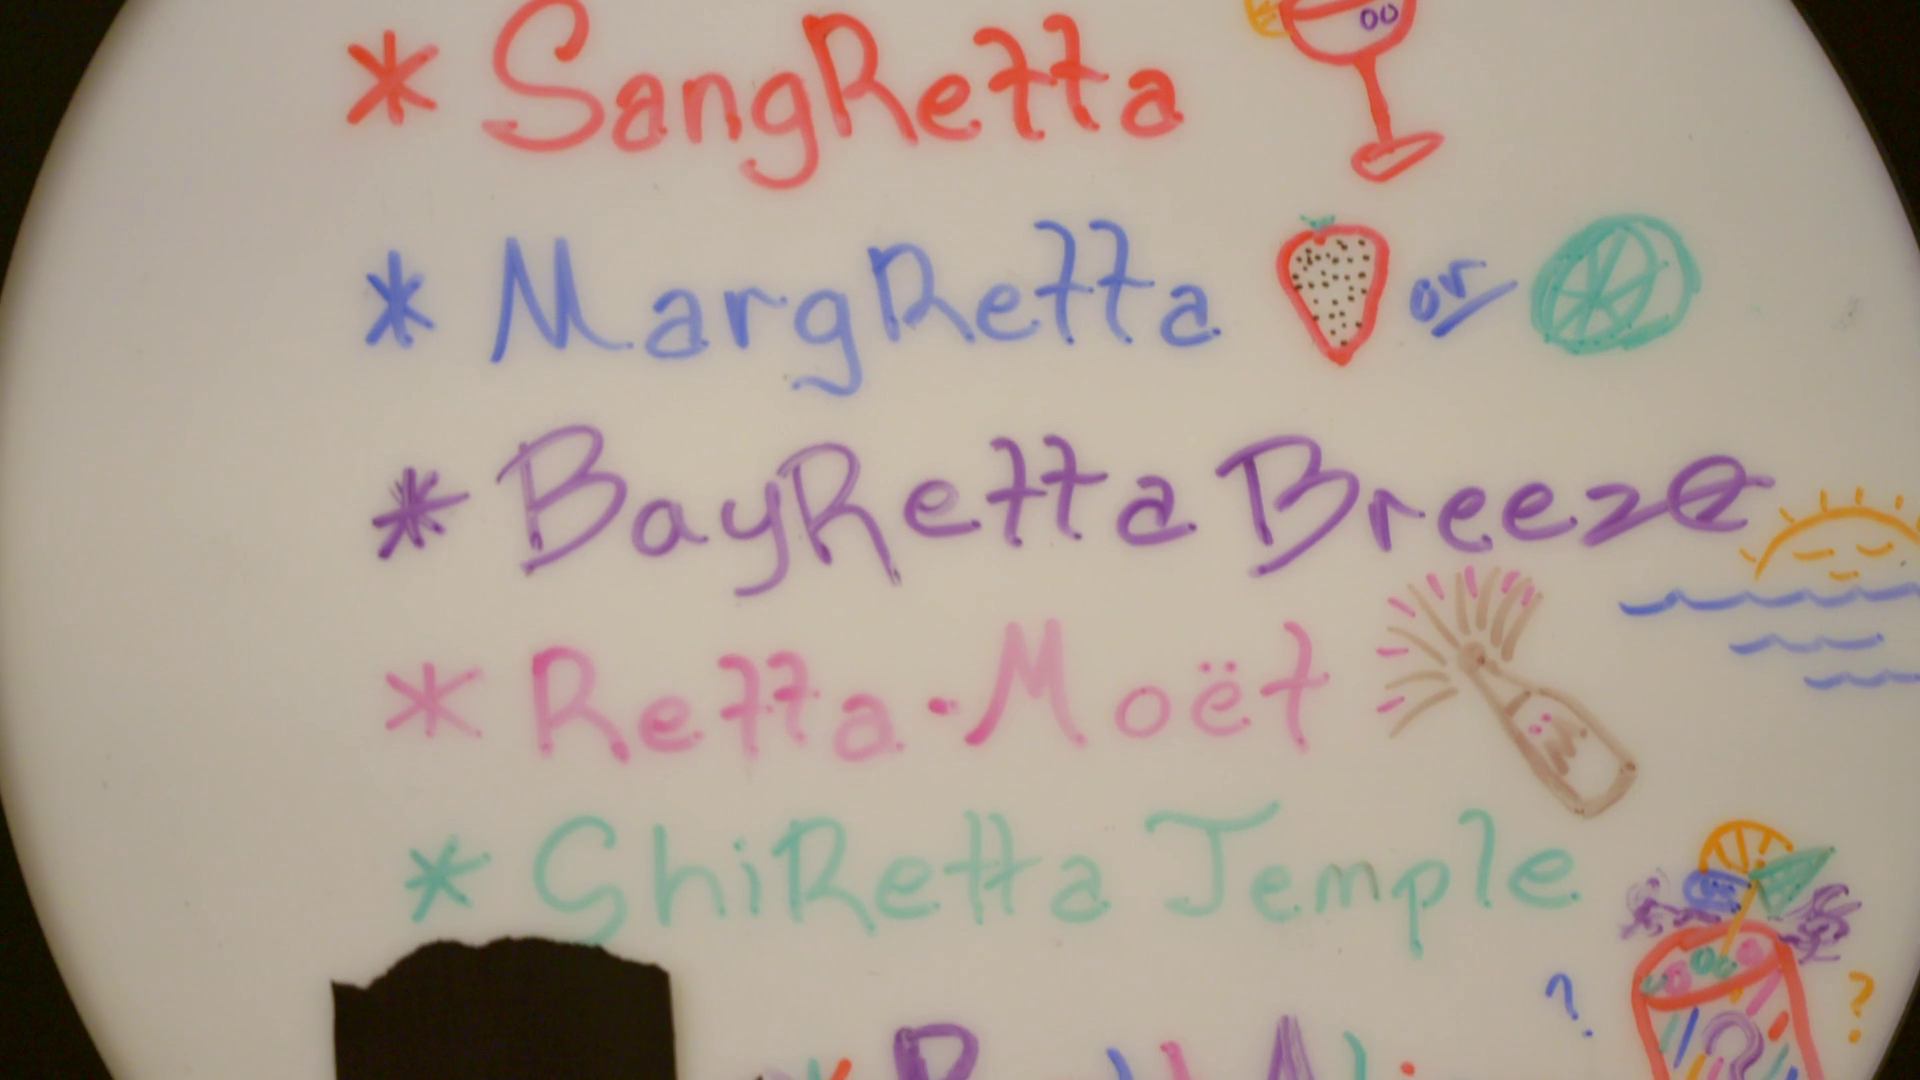 * SangRetta
* MargRetta or
* BayRetta Breeze
* Retta-Moët
* ShiRetta Temple
? ?